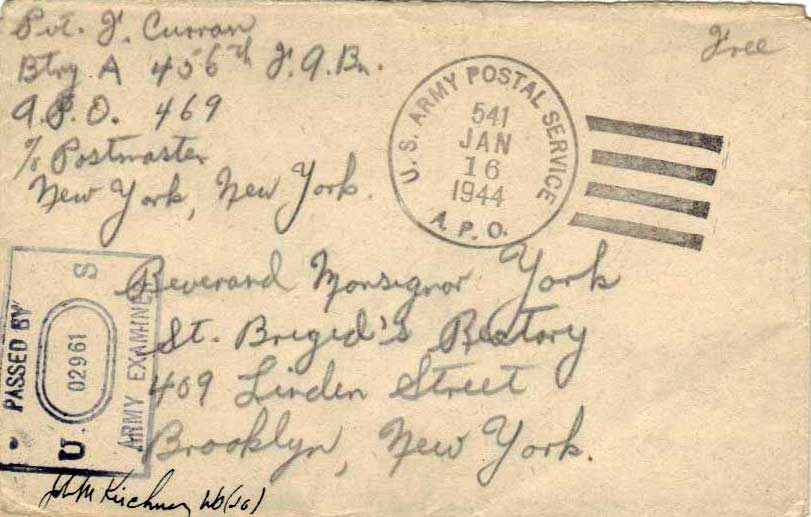 Pvt. J. Curran
Btry A 456th F.A.Bn.
A.P.O. 469
c/o Postmaster
New York, New York.
Free
U. S. ARMY POSTAL SERVICE
541
JAN
16
1944
A. P. O.
PASSED BY
U. S
02961
ARMY EXAMINER
Reverand Monsignor York
St. Briged's Rectory
409 Linden Street
Brooklyn, New York.
John Kirchner